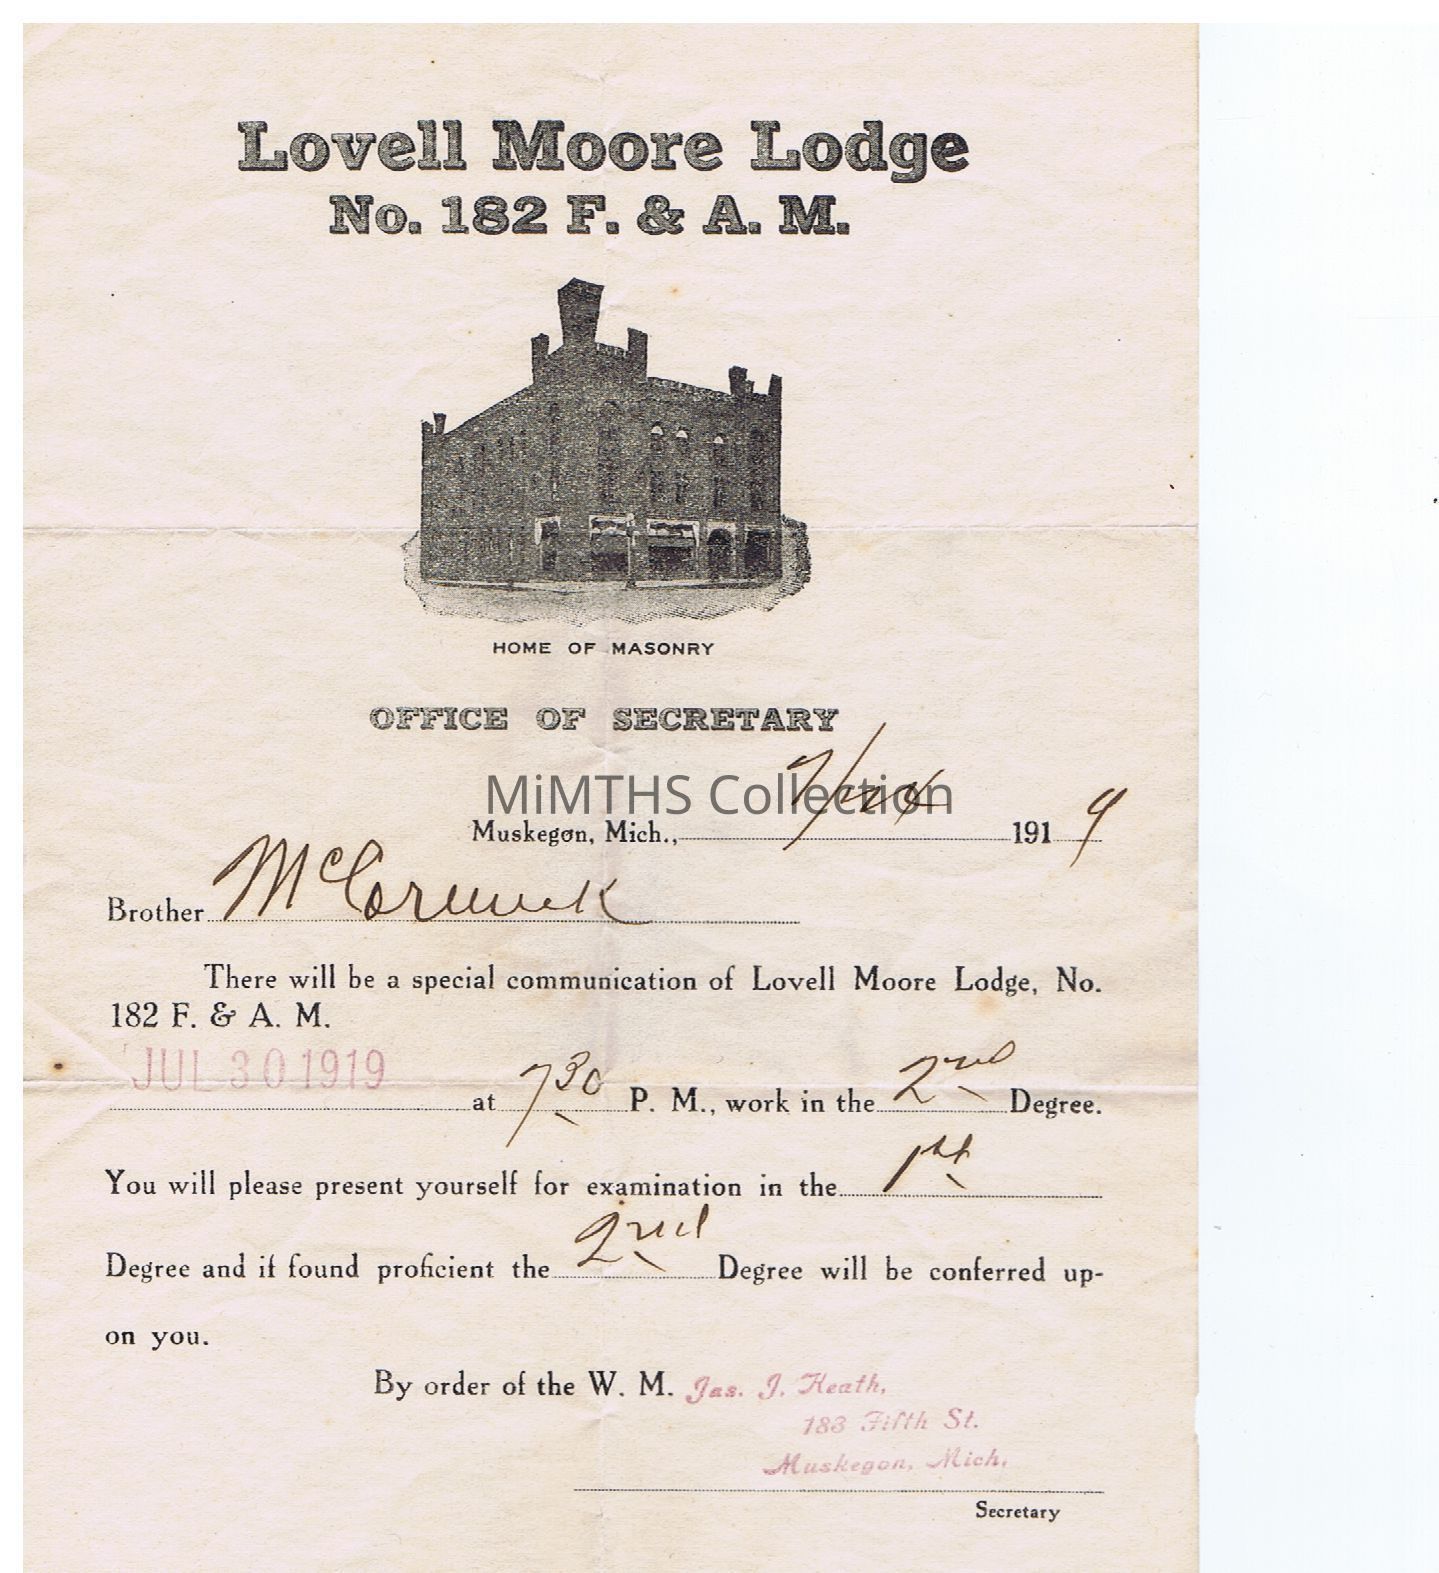 Lovell Moore Lodge
No. 182 F. & A. M.
HOME OF MASONRY
OFFICE OF SECRETARY
MiMTHS Collection
Muskegon, Mich., 1919
Brother McCormick
There will be a special communication of Lovell Moore Lodge, No.
182 F. & A. M.
JUL 30 1919 at 7 30 P. M., work in the 2nd Degree.
You will please present yourself for examination in the 1st
Degree and if found proficient the 2nd Degree will be conferred up-
on you.
By order of the W. M. Jas. J. Heath,
183 Fifth St.
Muskegon, Mich.
Secretary